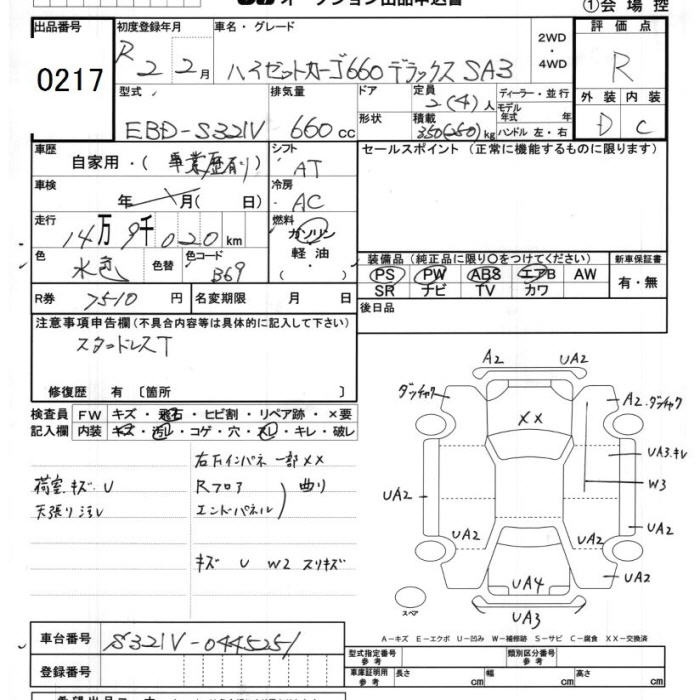 オークション出品申込書
①会場控
出品番号 0217
初度登録年月 R 2 2月
車名・グレード
ハイゼットカーゴ660デラックスSA3
2WD・4WD
評価点 R
外装 内装
D C
型式 EBD-S321V
排気量 660cc
ドア
形状
定員 2(4)人
積載 350(250)kg
ディーラー・並行
モデル年式 年
ハンドル 左・右
車歴 自家用・(事業歴有り)
シフト AT
車検 年 月( 日)
冷房 AC
走行 14万9千020km
燃料 ガソリン
軽油・
( )
色 水色
色替
色コード B69
R券 7510円
名変期限 月 日
セールスポイント(正常に機能するものに限ります)
装備品(純正品に限り○をつけてください)
PS PW ABS エアB AW
SR ナビ TV カワ
新車保証書
有・無
後日品
注意事項申告欄(不具合内容等は具体的に記入して下さい)
スタッドレスT
修復歴 有〔箇所 〕
検査員記入欄
FW キズ・飛石・ヒビ割・リペア跡・×要
内装 キズ・汚レ・コゲ・穴・スレ・キレ・破レ
右下インパネ一部××
荷室キズU
Rフロア
曲り
天張り汚レ
エンドパネル
キズ U W2 スリキズ
A2 UA2
ダッチャク
A2.ダッチャク
××
UA3.キレ
W3
UA2
UA2
UA2
UA2
UA2
UA4
スペア
UA3
A−キズ E−エクボ U−凹み W−補修跡 S−サビ C−腐食 XX−交換済
車台番号 S321V-0445251
登録番号
型式指定番号 参考
類別区分番号 参考
車庫証明用 参考
長さ cm
幅 cm
高さ cm